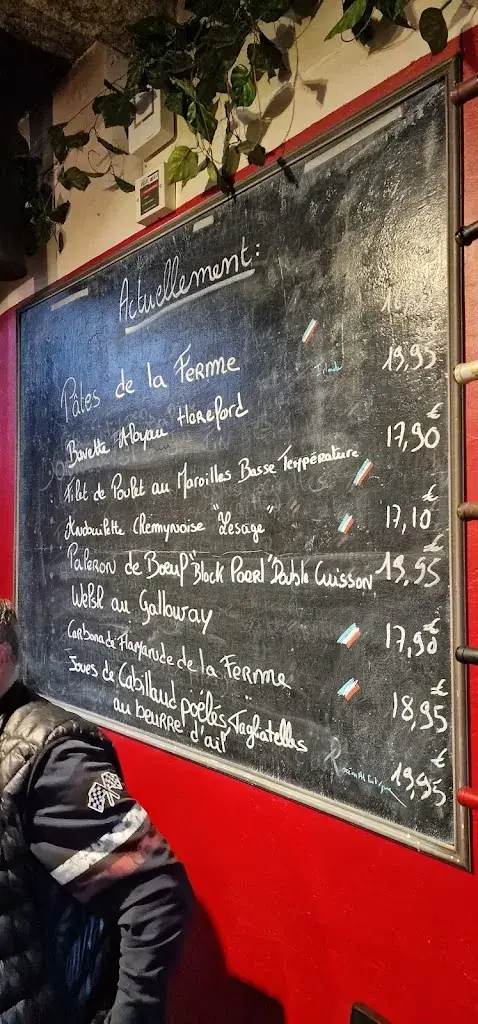 Actuellement:
Pâtes de la Ferme
Bavette Aloyau Hereford 19,95
Filet de Poulet au Maroilles Basse Température 17,90 €
Andouillette Chemynoise "Lesage" 17,10 €
Paleron de Boeuf "Black Pearl" Double Cuisson 19,95 €
Welsh au Galloway 17,90 €
Carbonade Flamande de la Ferme 18,95 €
Joues de Cabillaud poêlés, Tagliatelles 19,95 €
au beurre d'ail